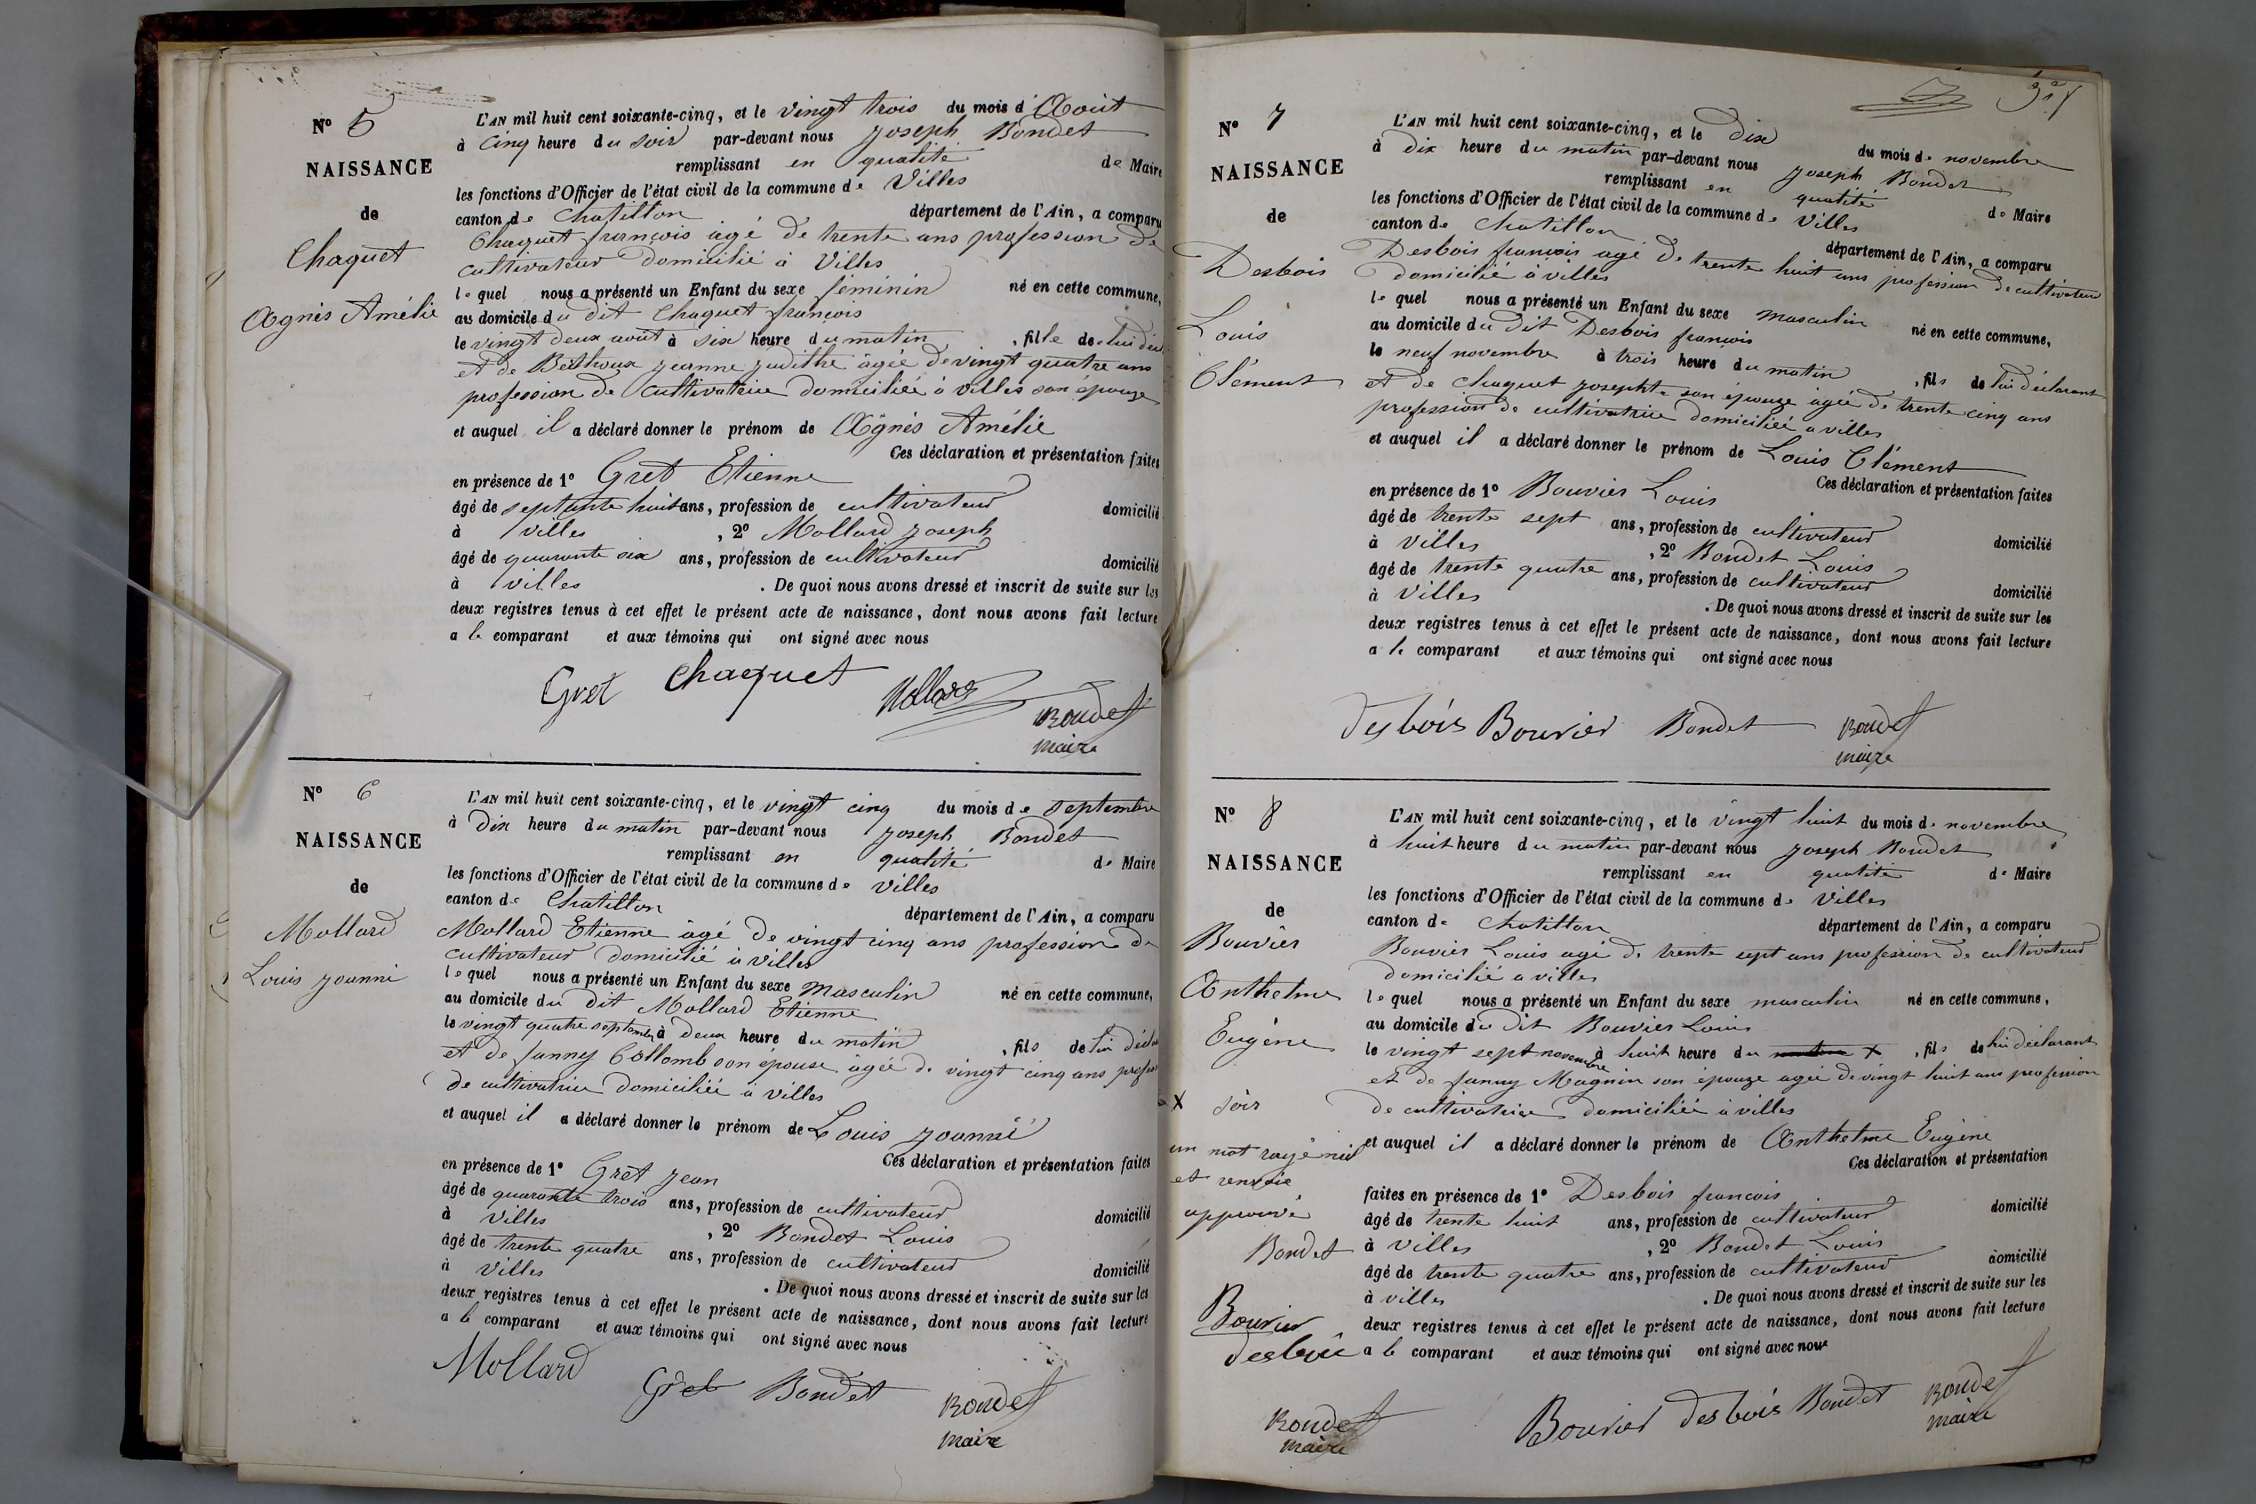 N° 5
NAISSANCE
de
Chaquet
Agnès Amélie
L'AN mil huit cent soixante-cinq, et le vingt trois du mois d'Août
à cinq heure du soir par-devant nous Joseph Bondet
remplissant en qualité de Maire
les fonctions d'Officier de l'état civil de la commune de Villes
canton de Chatillon département de l'Ain, a comparu
Chaquet françois agé de trente ans profession de
cultivateur domicilié à Villes
lequel nous a présenté un Enfant du sexe féminin né en cette commune,
au domicile du dit Chaquet françois
le vingt deux août à six heure du matin, fille de lui
et de Jeanne Judithe âgée de vingt quatre ans
profession de cultivatrice domiciliée à villes son épouze
et auquel il a déclaré donner le prénom de Agnès Amélie
Ces déclaration et présentation faites
en présence de 1° Gret Etienne
âgé de septante huit ans, profession de cultivateur domicilié
à villes, 2° Mollard Joseph
âgé de quarante six ans, profession de cultivateur domicilié
à villes. De quoi nous avons dressé et inscrit de suite sur les
deux registres tenus à cet effet le présent acte de naissance, dont nous avons fait lecture
a le comparant et aux témoins qui ont signé avec nous
Gret Chaquet Mollard Bondet
maire
N° 6
NAISSANCE
de
Mollard
Louis Joanni
L'AN mil huit cent soixante-cinq, et le vingt cinq du mois de septembre
à Dix heure du matin par-devant nous Joseph Bondet
remplissant en qualité de Maire
les fonctions d'Officier de l'état civil de la commune de villes
canton de Chatillon département de l'Ain, a comparu
Mollard Etienne âgé de vingt cinq ans profession de
cultivateur domicilié à villes
lequel nous a présenté un Enfant du sexe masculin né en cette commune,
au domicile du dit Mollard Etienne
le vingt quatre septembre à deux heure du matin, fils de lui
et de fanny Collomb son épouse âgée de vingt cinq ans
de cultivatrice domiciliée à villes
et auquel il a déclaré donner le prénom de Louis Joanni
Ces déclaration et présentation faites
en présence de 1° Gret Jean
âgé de quarante trois ans, profession de cultivateur domicilié
à villes, 2° Bondet Louis
âgé de trente quatre ans, profession de cultivateur domicilié
à villes. De quoi nous avons dressé et inscrit de suite sur les
deux registres tenus à cet effet le présent acte de naissance, dont nous avons fait lecture
a le comparant et aux témoins qui ont signé avec nous
Mollard Gret Bondet Bondet
maire
N° 7
NAISSANCE
de
Desbois
Louis
Clément
L'AN mil huit cent soixante-cinq, et le dix du mois de novembre
à dix heure du matin par-devant nous Joseph Bondet
remplissant en qualité de Maire
les fonctions d'Officier de l'état civil de la commune de Villes
canton de Chatillon département de l'Ain, a comparu
Desbois françois agé de trente huit ans profession de cultivateur
domicilié à villes
lequel nous a présenté un Enfant du sexe masculin né en cette commune,
au domicile du dit Desbois françois
le neuf novembre à trois heure du matin, fils de lui déclarant
et de Chaquet Josephte son épouze agée de trente cinq ans
profession de cultivatrice domiciliée a villes
et auquel il a déclaré donner le prénom de Louis Clément
Ces déclaration et présentation faites
en présence de 1° Bouvier Louis
âgé de trente sept ans, profession de cultivateur domicilié
à villes, 2° Bondet Louis
âgé de trente quatre ans, profession de cultivateur domicilié
à villes. De quoi nous avons dressé et inscrit de suite sur les
deux registres tenus à cet effet le présent acte de naissance, dont nous avons fait lecture
a le comparant et aux témoins qui ont signé avec nous
desbois Bouvier Bondet Bondet
maire
N° 8
NAISSANCE
de
Bouvier
Anthelme
Eugène
X soir
un mot rayé nul
et renvoie
approuvé
Bondet
Bouvier
desbois
Bondet
maire
L'AN mil huit cent soixante-cinq, et le vingt huit du mois de novembre
à huit heure du matin par-devant nous Joseph Bondet
remplissant en qualité de Maire
les fonctions d'Officier de l'état civil de la commune de Villes
canton de Chatillon département de l'Ain, a comparu
Bouvier Louis agé de trente sept ans profession de cultivateur
domicilié a villes
lequel nous a présenté un Enfant du sexe masculin né en cette commune,
au domicile du dit Bouvier Louis
le vingt sept novembre à huit heure du matin X, fils de lui déclarant
et de fanny Magnin son épouze agée de vingt huit ans profession
de cultivatrice domiciliée à villes
et auquel il a déclaré donner le prénom de Anthelme Eugène
Ces déclaration et présentation
faites en présence de 1° Desbois françois
âgé de trente huit ans, profession de cultivateur domicilié
à villes, 2° Bondet Louis
âgé de trente quatre ans, profession de cultivateur domicilié
à villes. De quoi nous avons dressé et inscrit de suite sur les
deux registres tenus à cet effet le présent acte de naissance, dont nous avons fait lecture
a le comparant et aux témoins qui ont signé avec nous
Bouvier desbois Bondet Bondet
maire